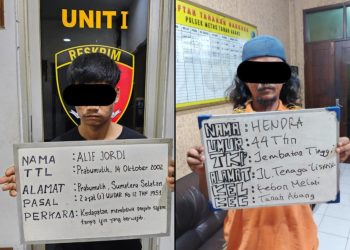 UNIT I
RESKRIM
NAMA : ALIF JORDI
TTL : Prabumulih, 14 Oktober 2002
ALAMAT : Prabumulih, Sumatera Selatan
PASAL : 2 ayat (1) UU DAR No 12 THN 1951
PERKARA : Kedapatan membawa senjata tajam
tanpa ijin yang berwajib.
FTAR TAHANAN
POLSEK METRO TANAH ABANG
NAMA : HENDRA
UMUR : 44 Thn
TKP : Jembatan Tinggi
ALAMAT : JL. Tenaga Listrik
KEL : Kebon Melati
KEC : Tanah Abang